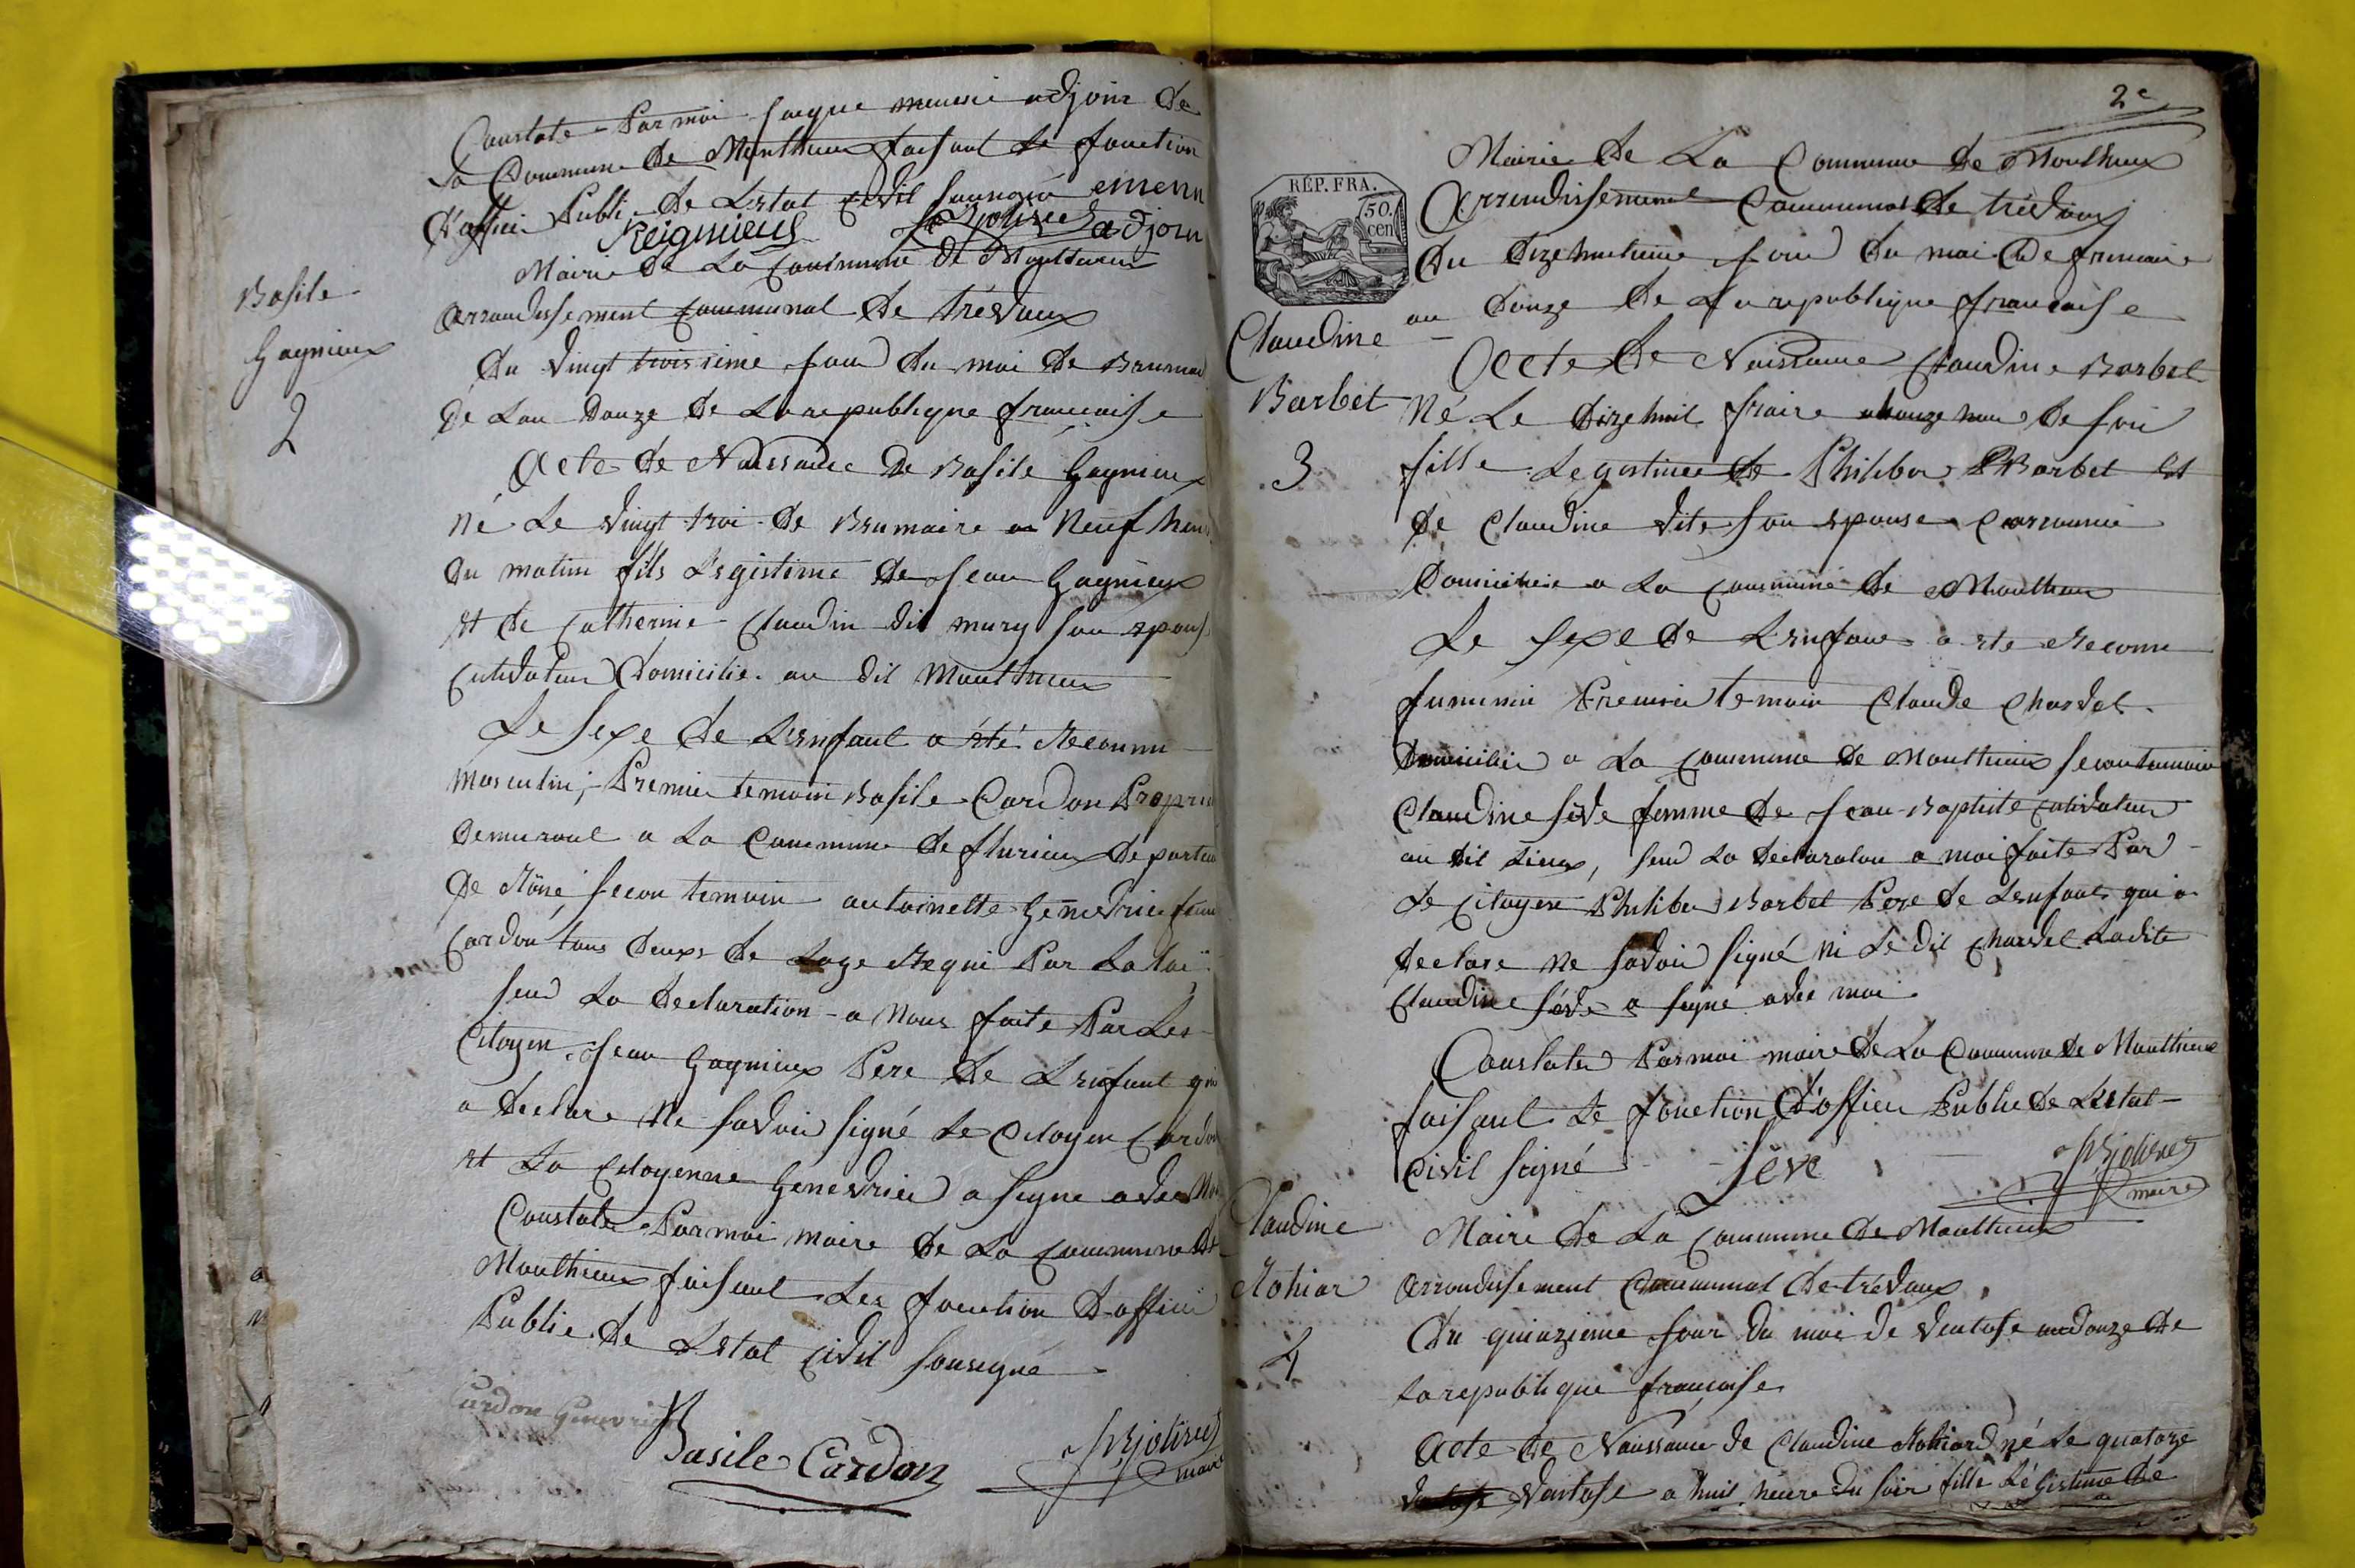 Constate Par moi Jaque adjoin de
la Commune de Monthieux faisant le fonction
d'officier Public de L'estat Civil
Reignieux adjoin
Mairie de La Commune de Monthieux
arrondissement communal de trévoux
Basile
Gagnieux
2
du vingt troisieme jour du moi de Brumai
De Lan Douze de La republique francaise
Acte de Naissance De Basile Gagnieux
né Le vingt troi De Brumaire a Neuf heu
du matin fils Legistime de Jean Gagnieux
et De Catherine Claudin dit mury son epous
Cultivateur Domicilie au dit Monthieux
Le Sexe de L'enfant a été Reconnu
masculin; Premier temoin Basile Cardon Propri
Demurant a La Commune de flurieux departem
De Rône secon temoin antoinette Genevrier fem
Cardon tous Deux de Lage Requi Par La Loi
sur La Declaration a Nous faite Par Les
Citoyen Jean Gagnieux Pere De L'enfant qui
a declare Ne savoir signé Le Citoyen Cardon
et La Citoyenne Genevrier a signe avec
Constate Par moi maire de La Commune De
Monthieux faisant Les fonction D'officie
Public De L'estat Civil sousigné
Cardon Genevrier
Basile Cardon
maire
2e
Mairie De La Commune de Monthieux
RÉP. FRA.
50.
cen
Arrondissement Communal de trévoux
Du dizehuitieme jour du moi De frimaire
an Douze De La republique francaise
Claudine
Barbet
3
Acte De Naissance Claudine Barbet
Né Le dizehuit a honze heur de soir
fille Legestime de Philiber Barbet et
De Claudine dite son epouse
Domicilie a La Commune de Monthieux
Le Sexe de L'enfant a ete Reconu
Premier temoin Claude Chardet
Domicilié a La Commune De Monthieux secon temoin
Claudine séve femme de Jean Baptiste cultivateur
au dit Lieux, sur La declaration a moi faite Par
Le Citoyen Philiber Barbet Pere De L'enfant qui a
declare Ne savoir signé ni Le dit Chardet Ladite
Claudine séve a signe avec moi
Constater Par moi maire De La Commune De Monthieux
faisant Le fonction D'officier Public De L'estat
Civil signé Seve
maire
Claudine
Rohiar
4
Mairie De La Commune De Monthieux
arrondissement Communal De trévoux
Du quinzieme jour du moi de ventose an douze de
La republique francaise
Acte De Naissance De Claudine Rohiard né Le quatorze
ventose a huit heure du soir fille Légistime De